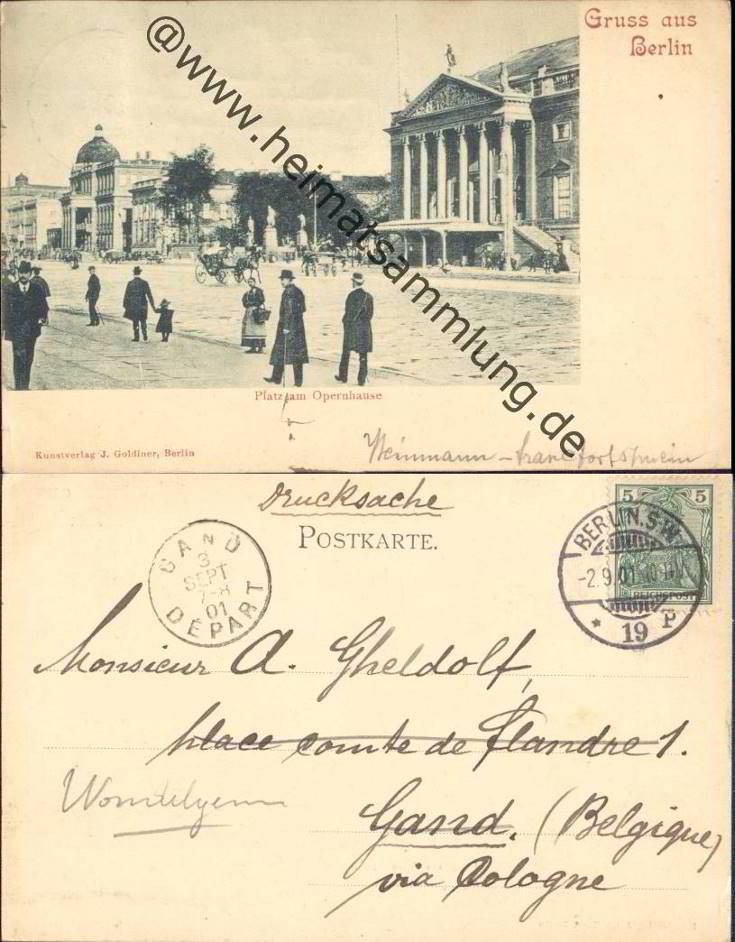 Gruss aus
Berlin
@www.heimatsammlung.de
Platz am Opernhause
Kunstverlag J. Goldiner, Berlin
Drucksache
POSTKARTE.
5 5
REICHSPOST
BERLIN. S.W.
-2.9.01
* 19 P
GAND
3
SEPT
7-8
01
DÉPART
Monsieur A. Gheldolf,
place comte de Flandre 1.
Gand. (Belgique)
via Cologne